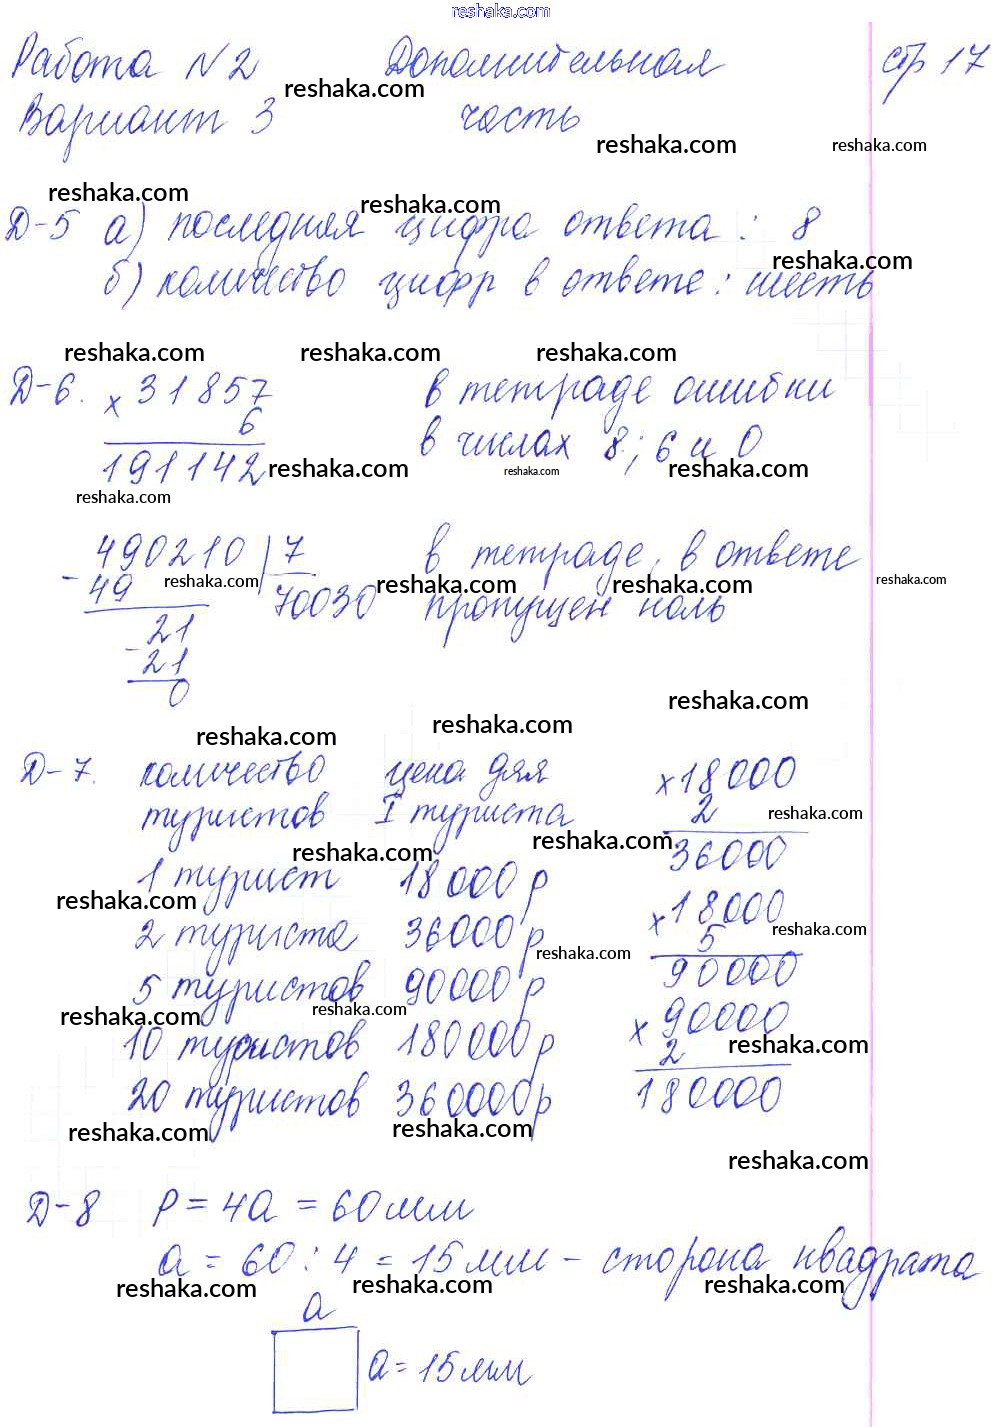 reshaka.com
Работа №2 Дополнительная стр 17
reshaka.com
Вариант 3 часть
reshaka.com reshaka.com
reshaka.com reshaka.com
Д-5 а) последняя цифра ответа : 8
reshaka.com
б) количество цифр в ответе : шесть
reshaka.com reshaka.com reshaka.com
Д-6. × 31857 в тетраде ошибки
6 в числах 8; 6 и 0
191142 reshaka.com reshaka.com reshaka.com
reshaka.com
490210 | 7 в тетраде, в ответе
- 49 reshaka.com 70030 reshaka.com reshaka.com reshaka.com
пропущен ноль
21
- 21
0
reshaka.com
reshaka.com reshaka.com
Д-7. количество цена для × 18000
туристов I туриста 2 reshaka.com
reshaka.com reshaka.com 36000
1 турист 18000 р
reshaka.com × 18000
2 туриста 36000 р 5 reshaka.com
reshaka.com 90000
5 туристов 90000 р
reshaka.com reshaka.com × 90000
10 туристов 180000 р 2 reshaka.com
20 туристов 360000 р 180000
reshaka.com reshaka.com
reshaka.com
Д-8 P = 4a = 60 мм
a = 60 : 4 = 15 мм – сторона квадрата
reshaka.com reshaka.com reshaka.com
a
a = 15 мм